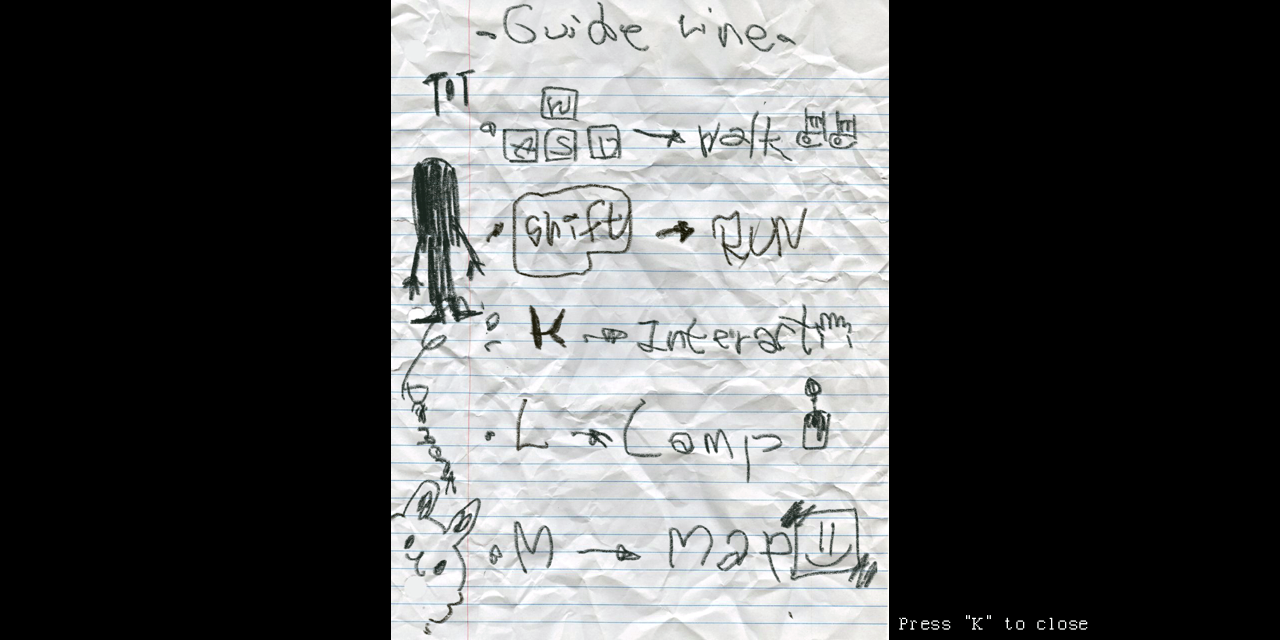 -Guide Line-
W
A S D → Walk
Shift → RUN
K → Interact
L → Lamp
M → Map
Press "K" to close